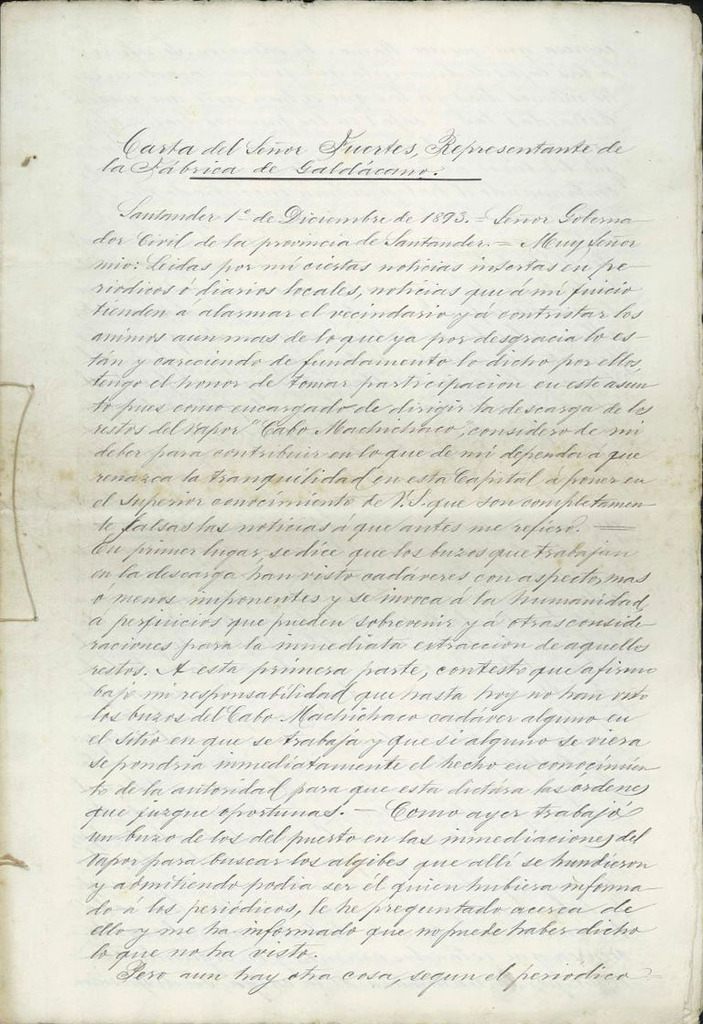 Carta del Señor Fuertes, Representante de
la Fábrica de Galdácano.
Santander 1º de Diciembre de 1893. = Señor Goberna
dor Civil de la provincia de Santander. = Muy Señor
mio: Leidas por mi ciertas noticias insertas en pe-
riódicos ó diarios locales, noticias que á mi juicio
tienden a alarmar el vecindario y á contristar los
animos aun mas de lo que ya por desgracia lo es-
tán y careciendo de fundamento lo dicho por ellos,
tengo el honor de tomar participacion en este asun-
to pues como encargado de dirigir la descarga de los
restos del vapor "Cabo Machichaco", considero de mi
deber para contribuir en lo que de mi dependa á que
renazca la tranquilidad en esta Capital á poner en
el superior conocimiento de V.S. que son completamen-
te falsas las noticias á que antes me refiero. =
En primer lugar, se dice que los buzos que trabajan
en la descarga han visto cadáveres con aspecto mas
o menos imponentes y se invoca á la humanidad,
a perjuicios que pueden sobrevenir y á otras conside-
raciones para la inmediata extraccion de aquellos
restos. A esta primera parte, contesto que afirmo
bajo mi responsabilidad que hasta hoy no han visto
los buzos del Cabo Machichaco cadáver alguno en
el sitio en que se trabaja y que si alguno se viera
se pondria inmediatamente el hecho en conocimien-
to de la autoridad para que esta dictara las órdenes
que juzgue oportunas. — Como ayer trabajó
un buzo de los del puerto en las inmediaciones del
vapor para buscar los algibes que allí se hundieron
y admitiendo podia ser él quien hubiera informa-
do á los periódicos, le he preguntado acerca de
ello y me ha informado que no puede haber dicho
lo que no ha visto.
Pero aun hay otra cosa, segun el periódico